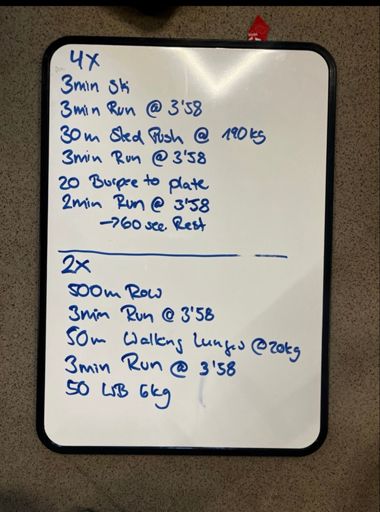 4x
3min Ski
3min Run @ 3'58
30m Sled Push @ 190kg
3min Run @ 3'58
20 Burpee to plate
2min Run @ 3'58
→60 sec Rest
2x
500m Row
3min Run @ 3'58
50m Walking Lunges @20kg
3min Run @ 3'58
50 WB 6kg